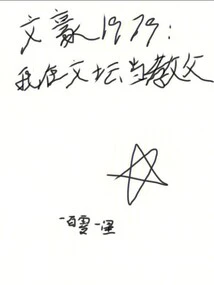 文豪1979：
我在文坛当教父
一百零一星